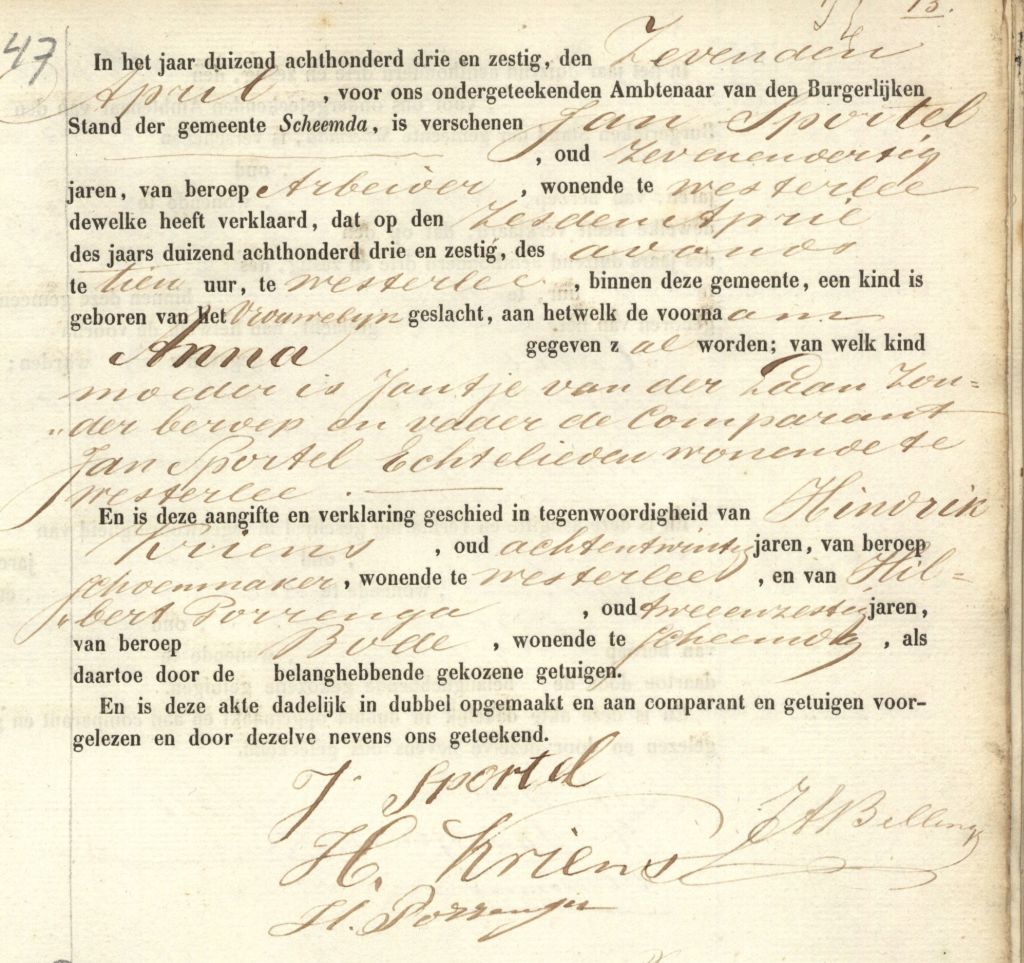 15.
47
In het jaar duizend achthonderd drie en zestig, den Zevenden
April , voor ons ondergeteekenden Ambtenaar van den Burgerlijken
Stand der gemeente Scheemda, is verschenen Jan Sportel
, oud Zevenenveertig
jaren, van beroep Arbeider , wonende te westerlee
dewelke heeft verklaard, dat op den Zesden April
des jaars duizend achthonderd drie en zestig, des avonds
te tien uur, te westerlee , binnen deze gemeente, een kind is
geboren van het Vrouwelijk geslacht, aan hetwelk de voornaam
Anna gegeven zal worden; van welk kind
moeder is Jantje van der Laan Zon=
„der beroep en vader de Comparant
Jan Sportel Echtelieden wonende te
westerlee .
En is deze aangifte en verklaring geschied in tegenwoordigheid van Hindrik
Kriens , oud achtentwintig jaren, van beroep
schoenmaker, wonende te westerlee , en van Hil=
„bert Porrenga , oud tweeenzestig jaren,
van beroep Bode , wonende te Scheemda , als
daartoe door de belanghebbende gekozene getuigen.
En is deze akte dadelijk in dubbel opgemaakt en aan comparant en getuigen voor-
gelezen en door dezelve nevens ons geteekend.
J Sportel
H. Kriens
H. Porrenga